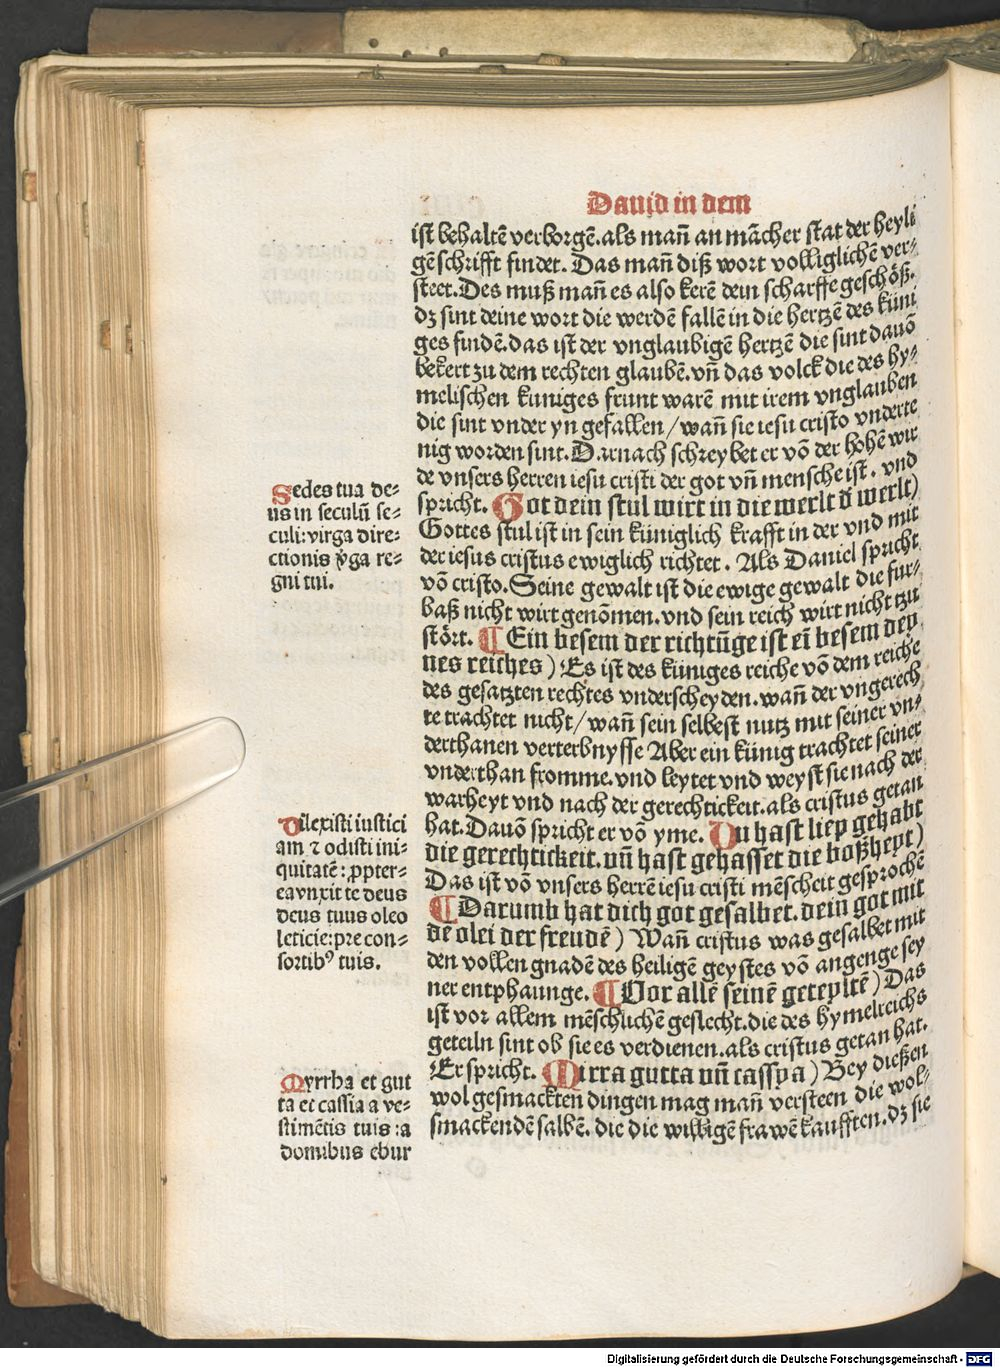 Dauid in dem
ist behaltē verborgē.als mañ an mācher stat der heyli
gē schrifft findet. Das mañ diß wort volliglichē ver⸗
steet.Des muß mañ es also kerē dein scharffe geschöß.
dz sint deine wort die werdē fallē in die hertzē des küni
ges findē.das ist der vnglaubigē hertzē die sint dauō
bekert zu dem rechten glaubē.vñ das volck die des hy⸗
melischen kuniges frunt warē mit irem vnglauben
die sint vnder yn gefallen/wañ sie iesu cristo vnderte
nig worden sint.Darnach schreybet er vō der hohē wir
de vnsers herren iesu cristi der got vñ mensche ist. vnd
spricht. Got dein stul wirt in die werlt d̄ werlt)
Gottes stul ist in sein küniglich krafft in der vnd mit
der iesus cristus ewiglich richtet. Als Daniel spricht
vō cristo.Seine gewalt ist die ewige gewalt die fur⸗
baß nicht wirt genōmen.vnd sein reich wirt nicht tzu
stört. ¶Ein besem der richtūge ist eī besem dey
nes reiches) Es ist des küniges reiche vō dem reiche
des gesatzten rechtes vnderscheyden.wañ der vngerech
te trachtet nicht/wañ sein selbest nutz mit seiner vn⸗
derthanen verterbnysse Aber ein künig trachtet seiner
vnderthan fromme.vnd leytet vnd weyst sie nach der
warheyt vnd nach der gerechtickeit.als cristus getan
hat.Dauō spricht er vō yme. Du hast liep gehabt
die gerechtickeit.vñ hast gehasset die boßheyt)
Das ist vō vnsers herrē iesu cristi mēscheit gesprochē
¶Darumb hat dich got gesalbet.dein got mit
de olei der freudē) Wañ cristus was gesalbet mit
den vollen gnadē des heiligē geystes vō angenge sey
ner entphaunge. ¶Vor allē seinē geteyltē) Das
ist vor allem mēschlichē geslecht.die des hymelreichs
geteiln sint ob sie es verdienen.als cristus getan hat.
Er spricht. Mirra gutta vñ cassya) Bey dießen
wol gesmackten dingen mag mañ versteen die wol⸗
smackendē salbē. die die willigē frawē kaufften.dz sie
Sedes tua de⸗
us in seculū se⸗
culi:virga dire⸗
ctionis v̄ga re⸗
gni tui.
Dilexisti iustici
am ⁊ odisti ini⸗
quitatē:ꝓpter⸗
ea vnxit te deus
deus tuus oleo
leticie:pre con⸗
sortibꝰ tuis.
Myrrha et gut
ta et cassia a ve⸗
stimētis tuis:a
domibus ebur
Digitalisierung gefördert durch die Deutsche Forschungsgemeinschaft - DFG